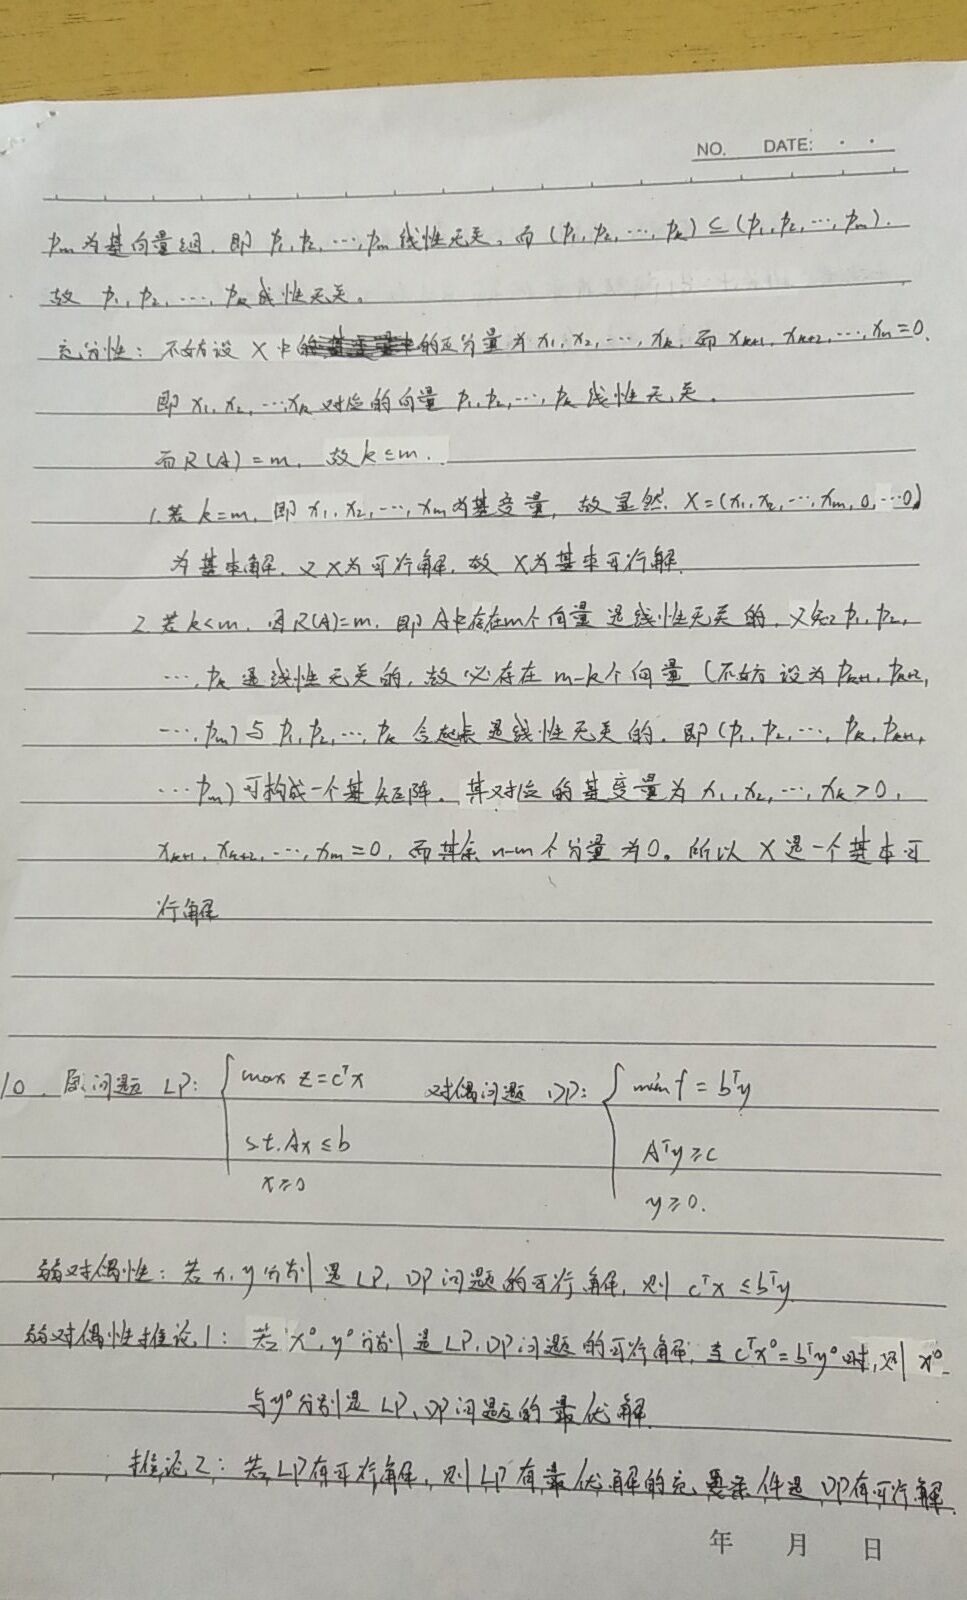 NO. DATE: · ·
p_m为基向量组，即 p₁, p₂, …, p_m 线性无关，而 (p₁, p₂, …, p_k) ⊆ (p₁, p₂, …, p_m).
故 p₁, p₂, …, p_k 线性无关。
充分性：不妨设 X 中的正分量为 x₁, x₂, …, x_k，而 x_{k+1}, x_{k+2}, …, x_n = 0.
即 x₁, x₂, …, x_k 对应的向量 p₁, p₂, …, p_k 线性无关。
而 R(A) = m，故 k ≤ m.
1. 若 k = m，即 x₁, x₂, …, x_m 为基变量，故显然 X = (x₁, x₂, …, x_m, 0, …0)
为基本解，又 X 为可行解，故 X 为基本可行解.
2. 若 k < m，因 R(A) = m，即 A 中存在 m 个向量是线性无关的，又知 p₁, p₂,
…, p_k 是线性无关的，故必存在 m-k 个向量 (不妨设为 p_{k+1}, p_{k+2},
…, p_m) 与 p₁, p₂, …, p_k 合起来是线性无关的，即 (p₁, p₂, …, p_k, p_{k+1},
… p_m) 可构成一个基矩阵，其对应的基变量为 x₁, x₂, …, x_k > 0,
x_{k+1}, x_{k+2}, …, x_m = 0，而其余 n-m 个分量为 0。所以 X 是一个基本可
行解
10. 原问题 LP: { max z = cᵀx 对偶问题 DP: { min f = bᵀy
s.t. Ax ≤ b Aᵀy ≥ c
x ≥ 0 y ≥ 0.
弱对偶性：若 x, y 分别是 LP, DP 问题的可行解，则 cᵀx ≤ bᵀy
弱对偶性推论1：若 x⁰, y⁰ 分别是 LP、DP 问题的可行解，当 cᵀx⁰ = bᵀy⁰ 时，则 x⁰
与 y⁰ 分别是 LP、DP 问题的最优解
推论2：若 LP 有可行解，则 LP 有最优解的充要条件是 DP 有可行解.
年 月 日